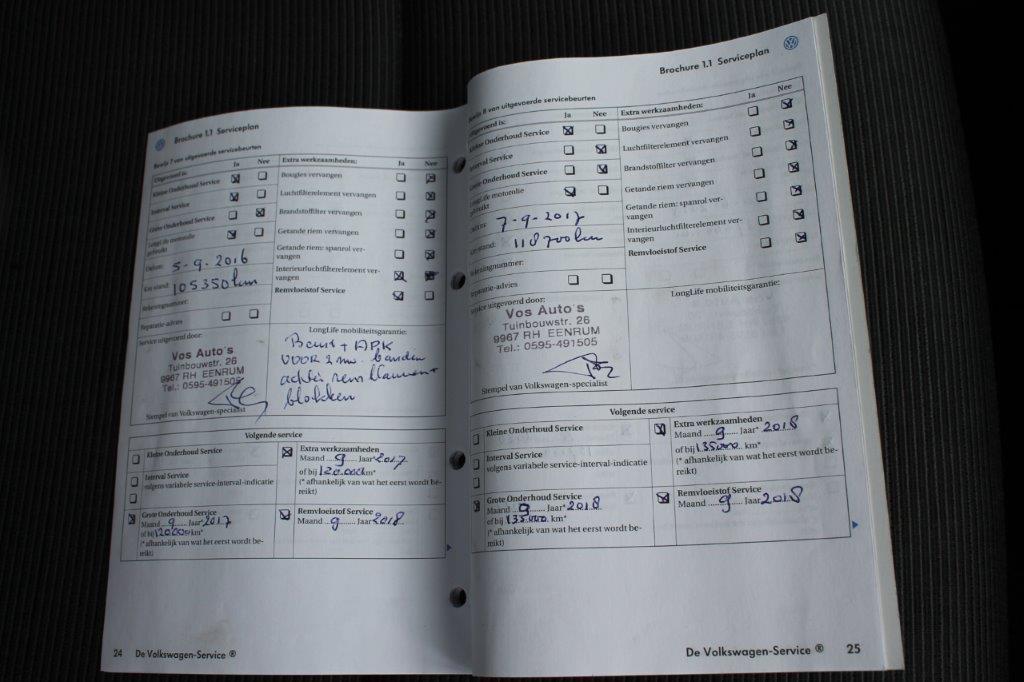 Brochure 1.1 Serviceplan
Bewijs 7 van uitgevoerde servicebeurten
Uitgevoerd is: Ja Nee
Kleine Onderhoud Service
Interval Service
Grote Onderhoud Service
LongLife motorolie
gebruikt
Datum: 5-9-2016
Km stand: 105350 km
Rekeningnummer:
Reparatie-advies
Extra werkzaamheden: Ja Nee
Bougies vervangen
Luchtfilterelement vervangen
Brandstoffilter vervangen
Getande riem vervangen
Getande riem: spanrol ver-
vangen
Interieurluchtfilterelement ver-
vangen
Remvloeistof Service
Service uitgevoerd door:
Vos Auto's
Tuinbouwstr. 26
9967 RH EENRUM
Tel.: 0595-491505
Stempel van Volkswagen-specialist
LongLife mobiliteitsgarantie:
Beurt + APK
voor 2 nw. banden
achter remklauwen +
blokken
Volgende service
Kleine Onderhoud Service
Interval Service
volgens variabele service-interval-indicatie
Grote Onderhoud Service
Maand ...9...... Jaar*2017
of bij 120000 km*
(* afhankelijk van wat het eerst wordt be-
reikt)
Extra werkzaamheden
Maand ...9..... Jaar*2017
of bij 120.000 km*
(* afhankelijk van wat het eerst wordt be-
reikt)
Remvloeistof Service
Maand ...9....... Jaar 2018
24 De Volkswagen-Service ®
Brochure 1.1 Serviceplan
Bewijs 8 van uitgevoerde servicebeurten
Uitgevoerd is: Ja Nee
Kleine Onderhoud Service
Interval Service
Grote Onderhoud Service
LongLife motorolie
gebruikt
Datum: 7-9-2017
Km stand: 118700 km
Rekeningnummer:
Reparatie-advies
Extra werkzaamheden: Ja Nee
Bougies vervangen
Luchtfilterelement vervangen
Brandstoffilter vervangen
Getande riem vervangen
Getande riem: spanrol ver-
vangen
Interieurluchtfilterelement ver-
vangen
Remvloeistof Service
Service uitgevoerd door:
Vos Auto's
Tuinbouwstr. 26
9967 RH EENRUM
Tel.: 0595-491505
Stempel van Volkswagen-specialist
LongLife mobiliteitsgarantie:
Volgende service
Kleine Onderhoud Service
Interval Service
volgens variabele service-interval-indicatie
Grote Onderhoud Service
Maand ...9...... Jaar*2018
of bij 135.000 km*
(* afhankelijk van wat het eerst wordt be-
reikt)
Extra werkzaamheden
Maand ....9...... Jaar*2018
of bij 135000 km*
(* afhankelijk van wat het eerst wordt be-
reikt)
Remvloeistof Service
Maand ....9...... Jaar 2018
De Volkswagen-Service ® 25